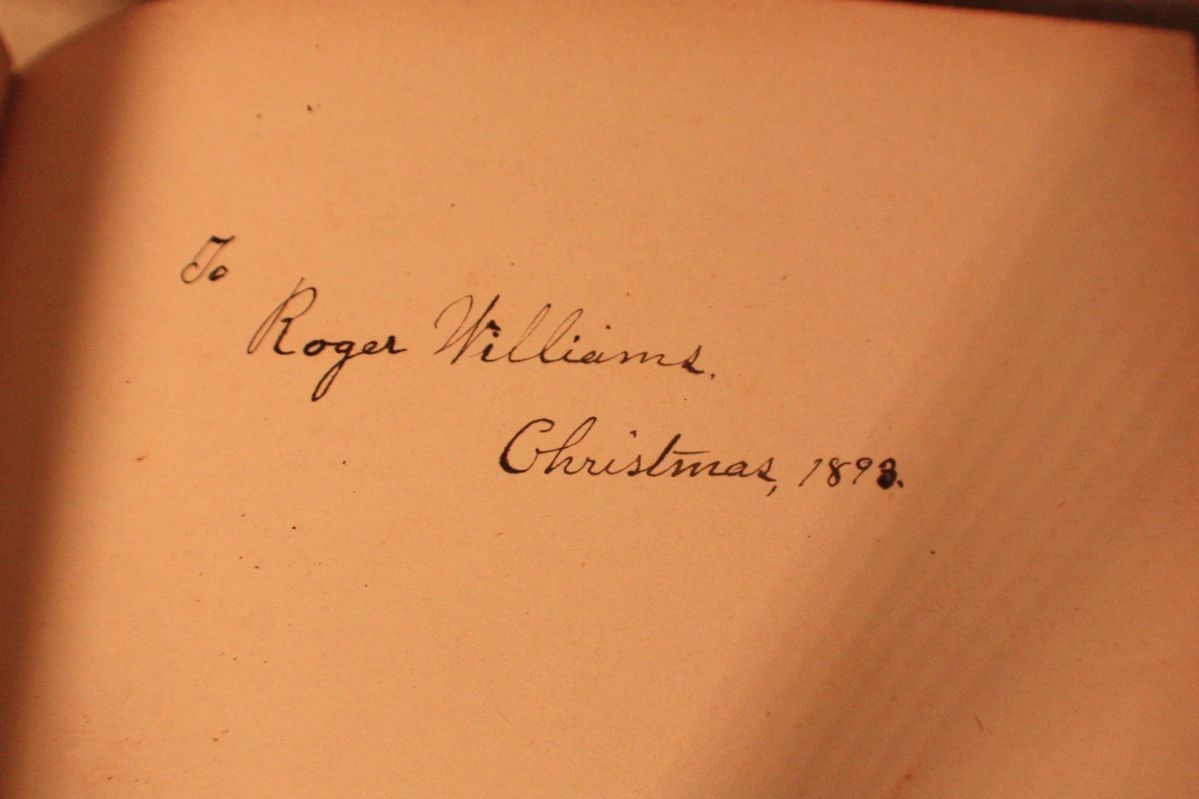 To
Roger Williams.
Christmas, 1893.